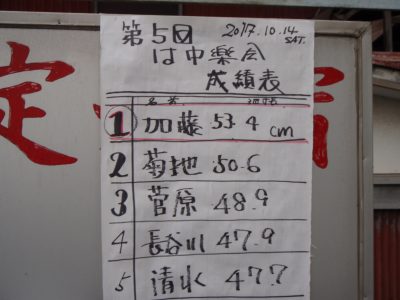 第5回 2017.10.14
SAT.
は中楽会
成績表
1 加藤 53.4 cm
2 菊地 50.6
3 菅原 48.9
4 長谷川 47.9
5 清水 47.7
定